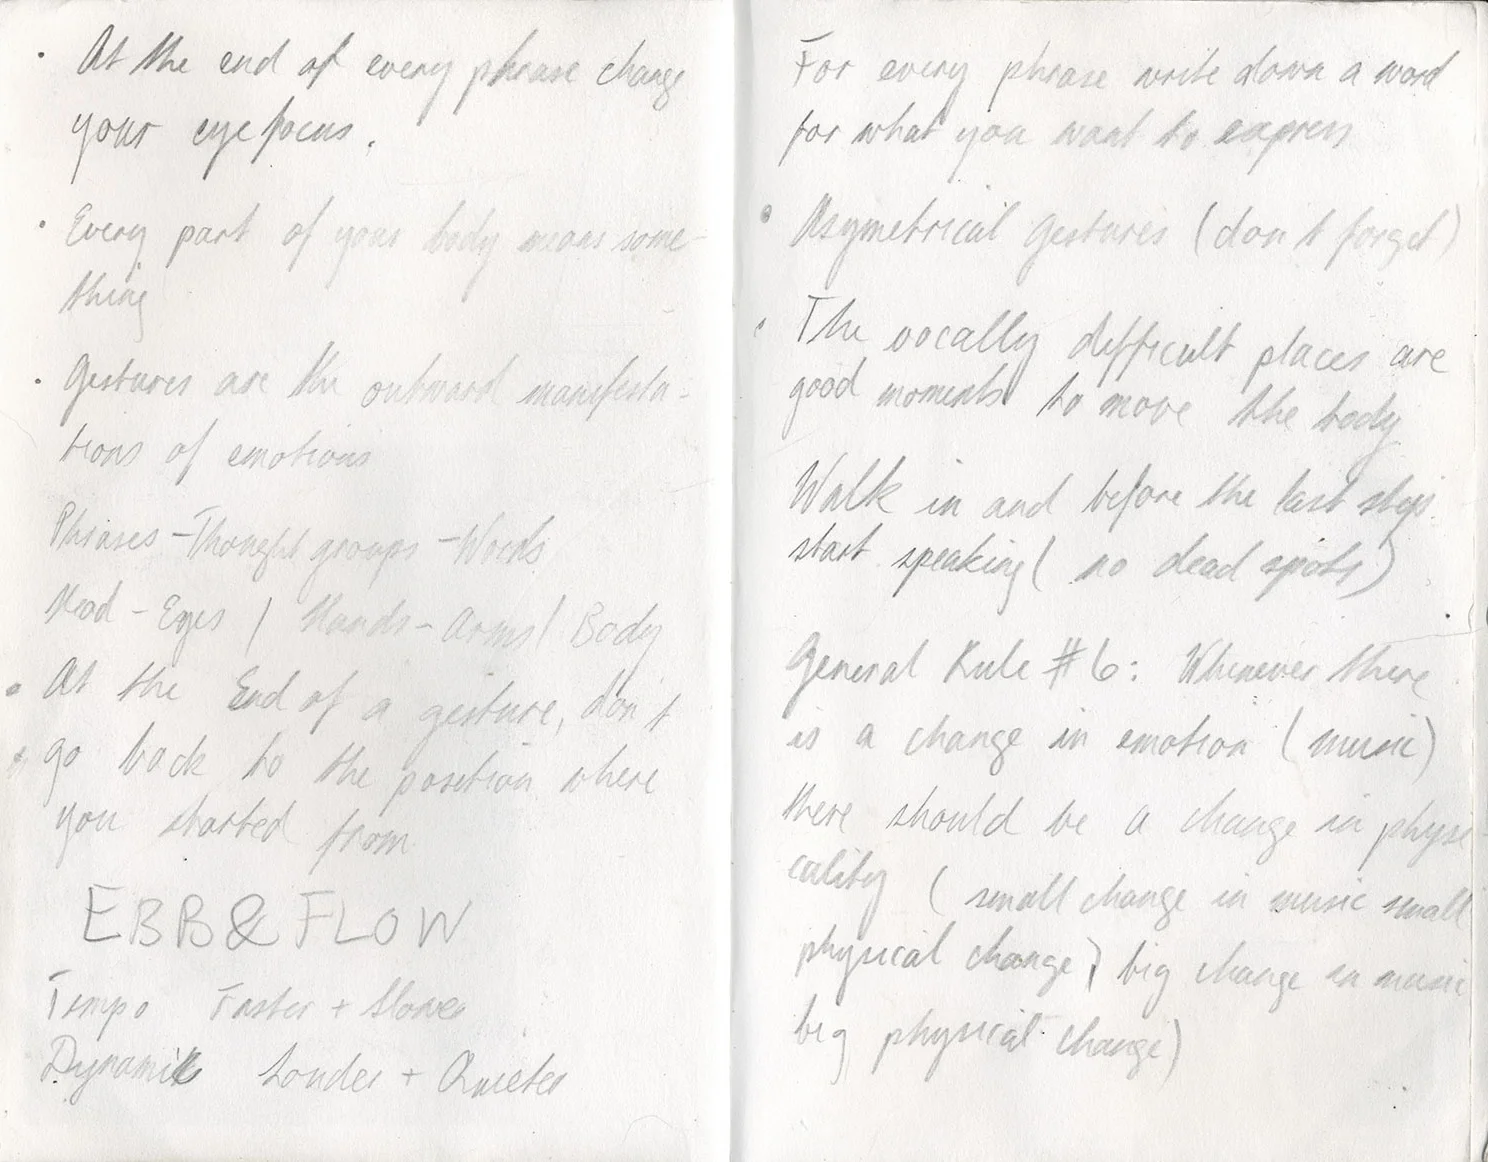 • At the end of every phrase change
your eye focus.
• Every part of your body means some-
thing
• Gestures are the outward manifesta-
tions of emotions
Phrases - Thought groups - Words
Head - Eyes / Hands - Arms / Body
• At the End of a gesture, don't
go back to the position where
you started from
EBB & FLOW
Tempo Faster + Slower
Dynamik Louder + Quieter
For every phrase write down a word
for what you want to express
• Asymetrical gestures (don't forget)
• The vocally difficult places are
good moments to move the body
Walk in and before the last step
start speaking (no dead spots)
General Rule #6: Whenever there
is a change in emotion (music)
there should be a change in physi
cality (small change in music small
physical change) big change in music
big physical change)